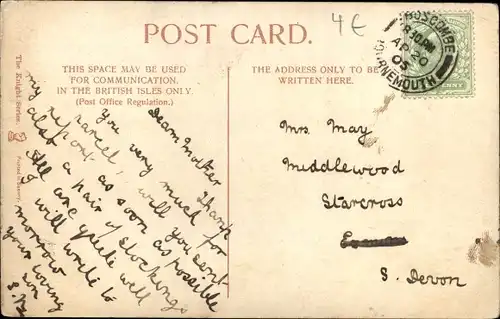 4 €
POST CARD.
THIS SPACE MAY BE USED
FOR COMMUNICATION
IN THE BRITISH ISLES ONLY.
(Post Office Regulation.)
THE ADDRESS ONLY TO BE
WRITTEN HERE.
The Knight Series.
Printed in
BOSCOMBE
8.30 PM
AP 20
05
BOURNEMOUTH
PENNY
Dear Mother Thank
You very much for
parcel, will you send
rep out as soon as possible
also a pair of stockings
my
All are quite well
I will write to
morrow
your loving
son
Mrs. May
Middlewood
Starcross
S. Devon